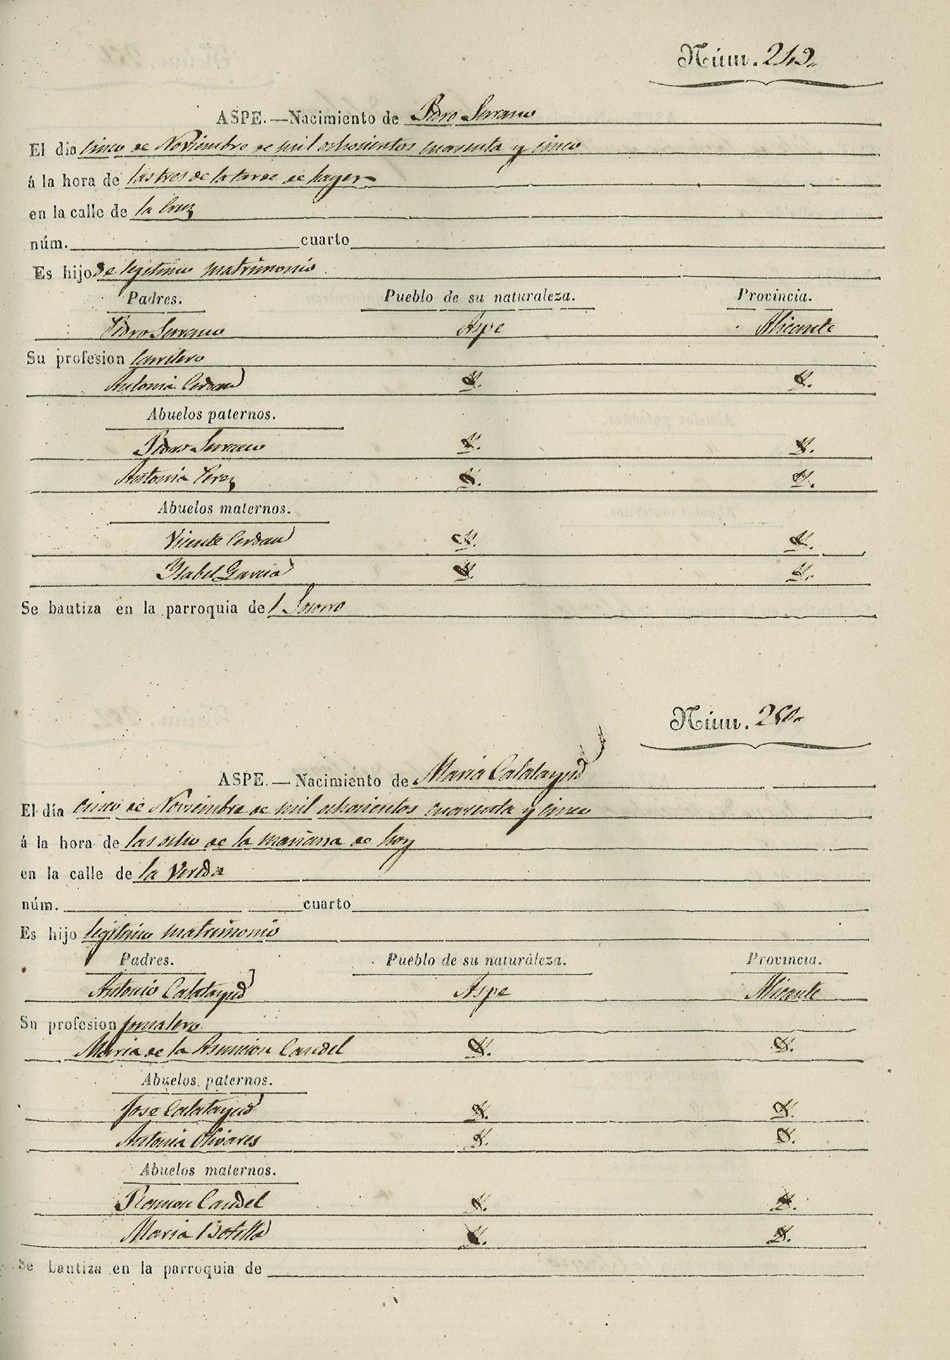 Núm. 249.
ASPE.—Nacimiento de Pedro Serrano
El día cinco de Noviembre de mil ochocientos cuarenta y cinco
á la hora de las tres de la tarde de hayer
en la calle de la Cruz
núm. cuarto
Es hijo de legitimo matrimonio
Padres. Pueblo de su naturaleza. Provincia.
Pedro Serrano Aspe Alicante
Su profesion
Antonia Cerdan Y. Y.
Abuelos paternos.
Pedro Serrano Y. Y.
Antonia Perez Y. Y.
Abuelos maternos.
Vicente Cerdan Y. Y.
Ysabel Garcia Y. Y.
Se bautiza en la parroquia de
Núm. 250.
ASPE.—Nacimiento de Maria Calatayud
El día cinco de Noviembre de mil ochocientos cuarenta y cinco
á la hora de las ocho de la mañana de hoy
en la calle de la Vereda
núm. cuarto
Es hijo legitimo matrimonio
Padres. Pueblo de su naturaleza. Provincia.
Antonio Calatayud Aspe Alicante
Su profesion jornalero
Maria de la Asuncion Candel Y. Y.
Abuelos paternos.
Jose Calatayud Y. Y.
Antonia Olivares Y. Y.
Abuelos maternos.
Ramon Candel Y. Y.
Maria Botella Y. Y.
Se bautiza en la parroquia de